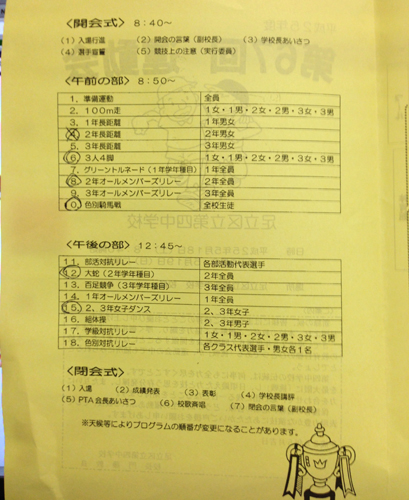 ＜開会式＞ 8:40～
(1) 入場行進 (2) 開会の言葉（副校長） (3) 学校長あいさつ
(4) 選手宣誓 (5) 競技上の注意（実行委員）
＜午前の部＞ 8:50～
1. 準備運動 全員
2. 100m走 1女・1男・2女・2男・3女・3男
3. 1年長距離 1年男女
4. 2年長距離 2年男女
5. 3年長距離 3年男女
6. 3人4脚 1女・1男・2女・2男・3女・3男
7. グリーントルネード（1年学年種目） 1年全員
8. 2年オールメンバーズリレー 2年全員
9. 3年オールメンバーズリレー 3年全員
10. 色別騎馬戦 全校生徒
＜午後の部＞ 12:45～
11. 部活対抗リレー 各部活動代表選手
12. 大蛇（2年学年種目） 2年全員
13. 百足競争（3年学年種目） 3年全員
14. 1年オールメンバーズリレー 1年全員
15. 2、3年女子ダンス 2、3年女子
16. 組体操 2、3年男子
17. 学級対抗リレー 1女・1男・2女・2男・3女・3男
18. 色別対抗リレー 各クラス代表選手・男女各1名
＜閉会式＞
(1) 入場 (2) 成績発表 (3) 表彰 (4) 学校長講評
(5) PTA会長あいさつ (6) 校歌斉唱 (7) 閉会の言葉（副校長）
※天候等によりプログラムの順番が変更になることがあります。